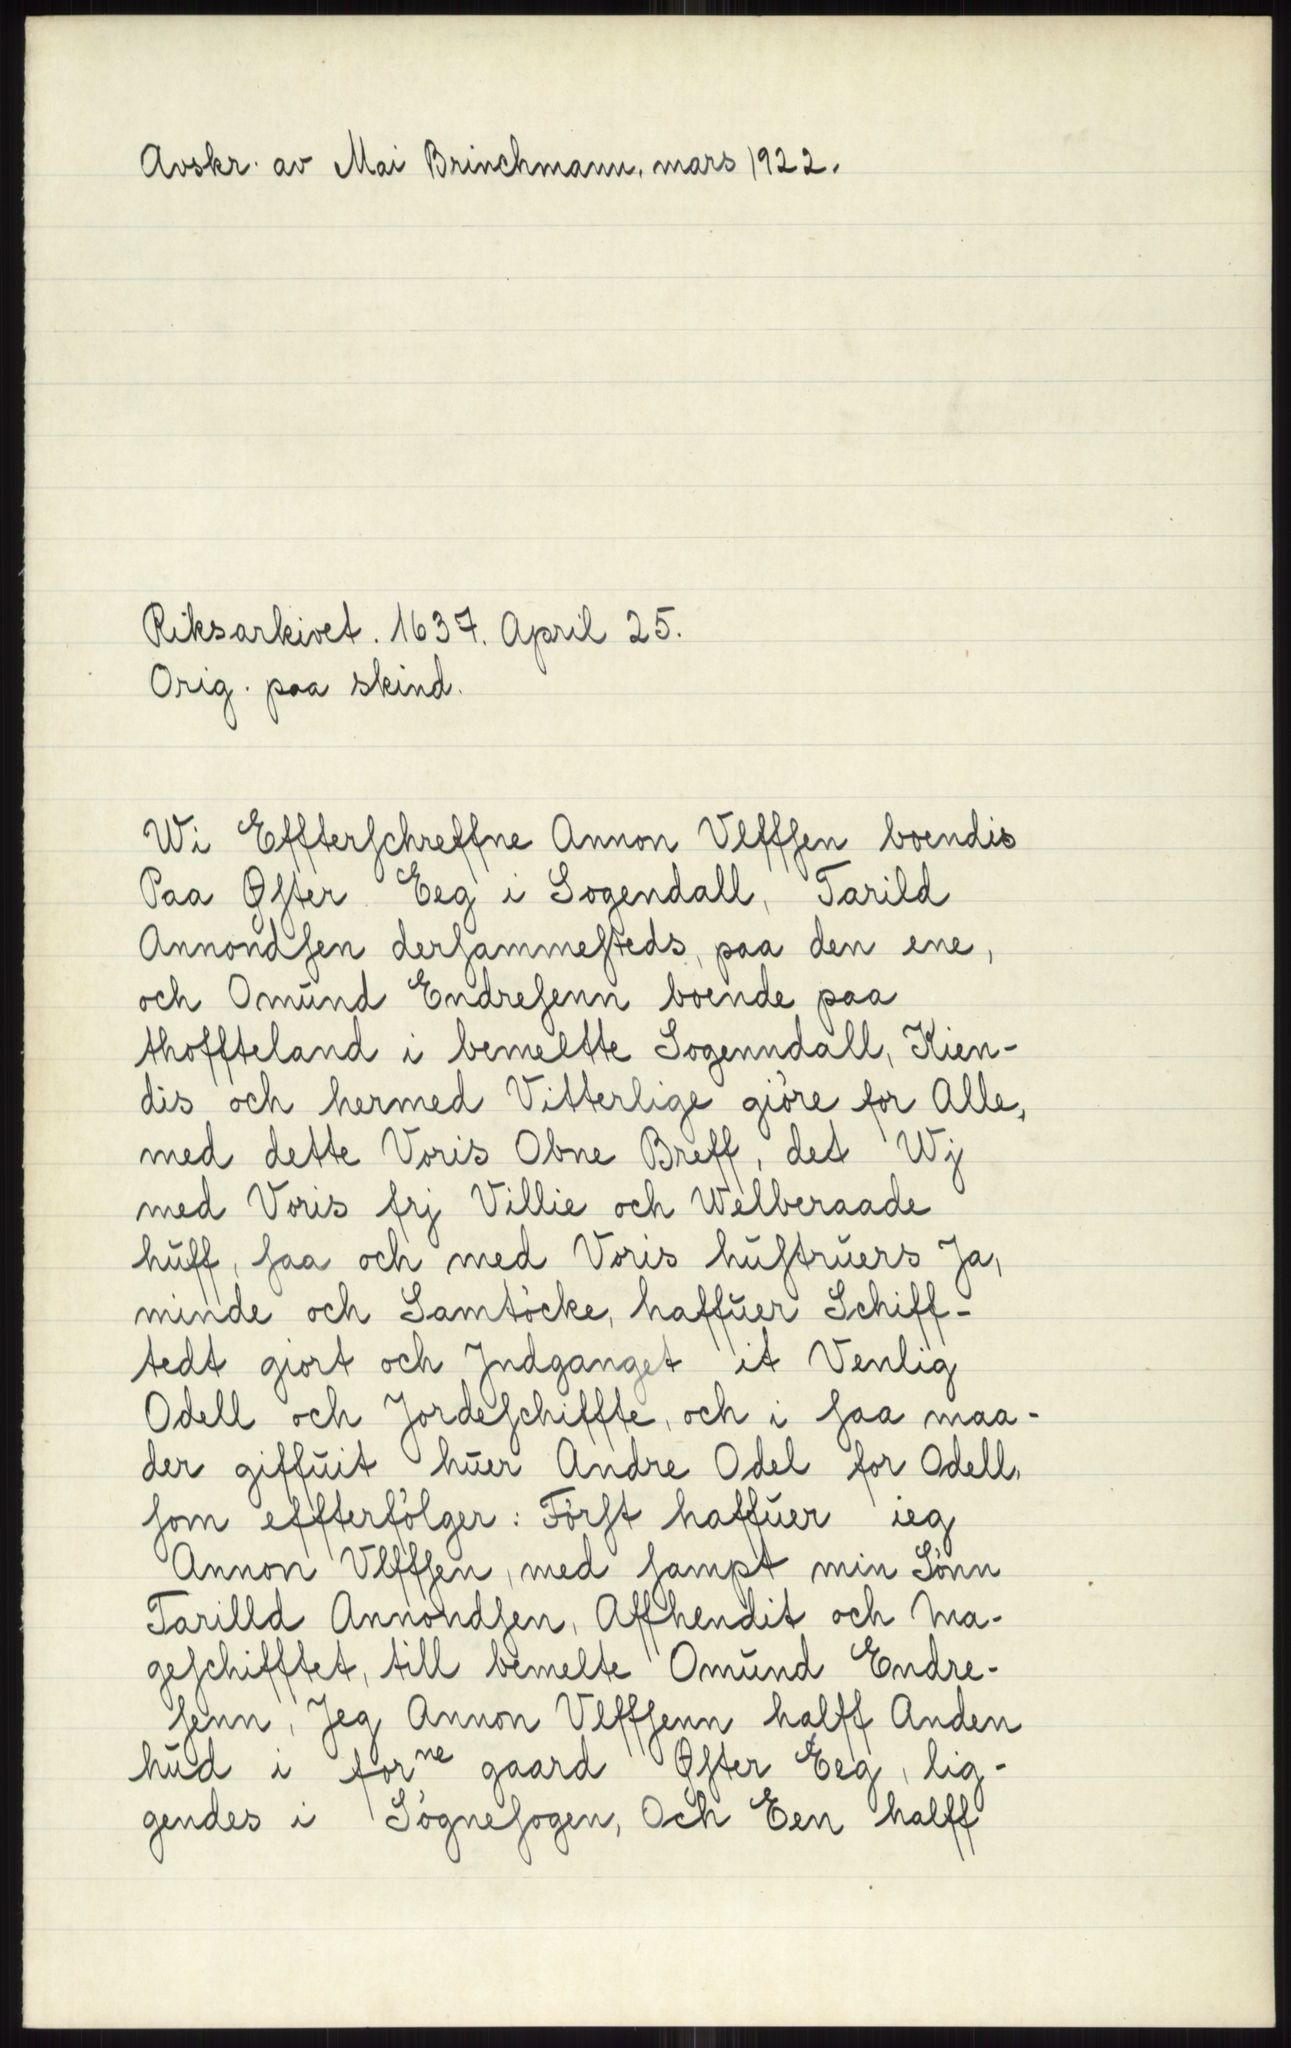 Avskr. av Mai Brinchmann, mars 1922.
Riksarkivet. 1637. April 25.
Orig. paa skind.
Wi Effterſchreffne Annon Vlffſen boendis
Paa Øſter Eeg i Sogendall, Tarild
Annondſen derſammeſteds, paa den ene,
och Omŭnd Endreſenn boende paa
thoffteland i bemeltte Sogenndall, Kien-
dis och hermed Vitterlige giöre for Alle,
med dette Voris Obne Breff, det Wj
med Voris frj Villie och Welberaade
hŭff, ſaa och med Voris hŭſtrŭers Ja,
minde och Samtöcke, haffŭer Schiff-
tedt giort och Jndganget it Venlig
Odell och Jordeſchiffte, och i ſaa maa-
der giffŭit hŭer Andre Odel for Odell,
ſom effterfölger: Förſt haffŭer ieg
Annon Vlffſen, med ſampt min Sönn
Tarilld Annondſen, Affhendit och Ma-
geſchifftet, till bemelte Omŭnd Endre-
ſenn, Jeg Annon Vlffſenn halff Anden
hŭd i forⁿᵉ gaard Øſter Eeg, lig-
gendes i Sögneſogen, Och Een halff